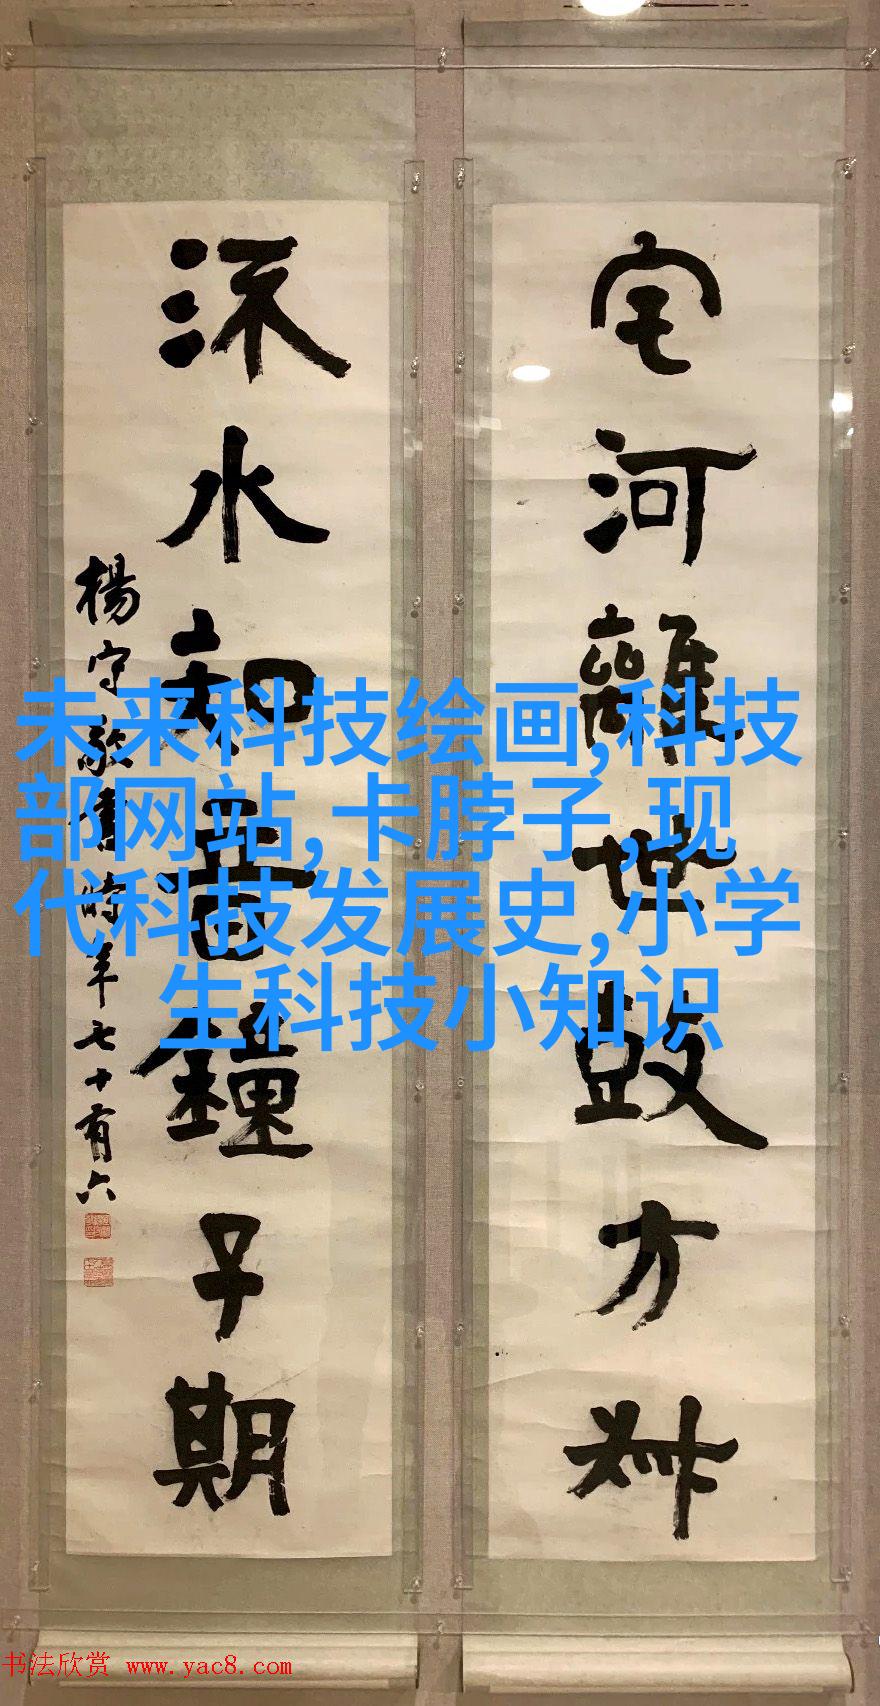 宅河離世鼓方叔
流水知音鐘子期
楊守敬書時年七十有六
未来科技绘画,科技
部网站,卡脖子,现
代科技发展史,小学
生科技小知识
书法欣赏 www.yac8.com